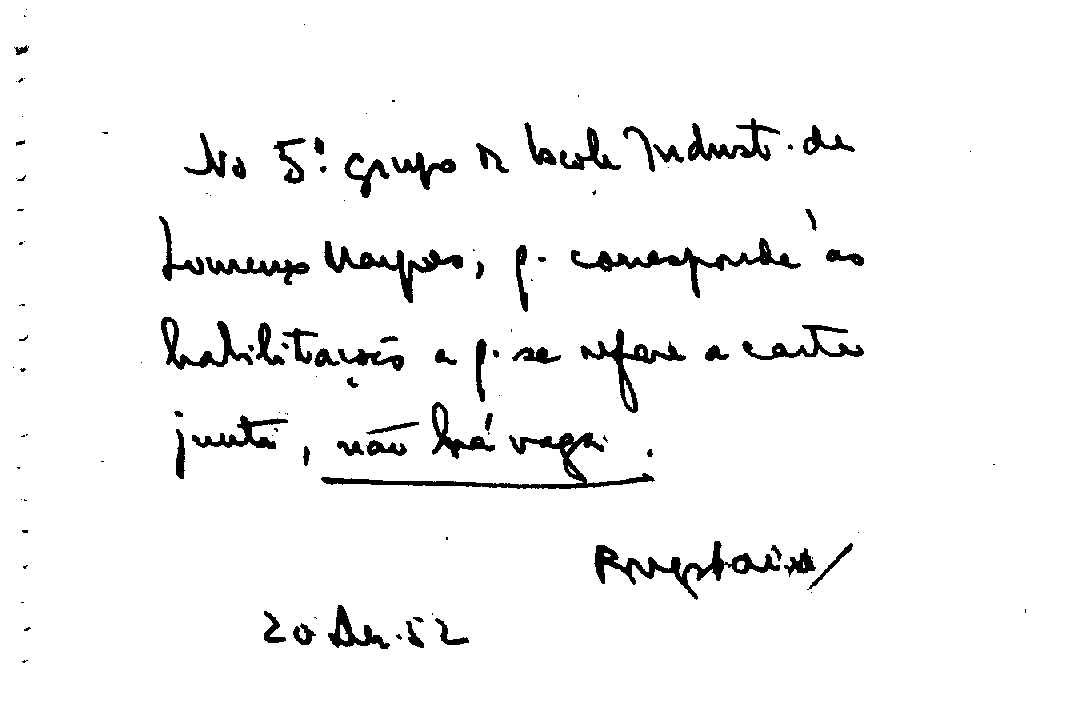 No 5.º grupo da Escola Indust. de
Lourenço Marques, q. corresponde às
habilitação a q. se refere a carta
junta, não há vaga.
20 Dez. 52